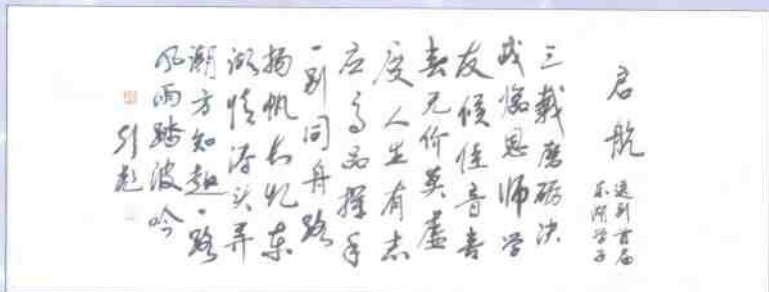 启航
送别首届
东湖学子
三载磨砺决
战临恩师学
友候佳音青
春无价莫虚
度人生有志
应高品挥手
一别同舟路
扬帆长忆东
湖情涛头弄
潮方知趣一路
风雨踏波吟